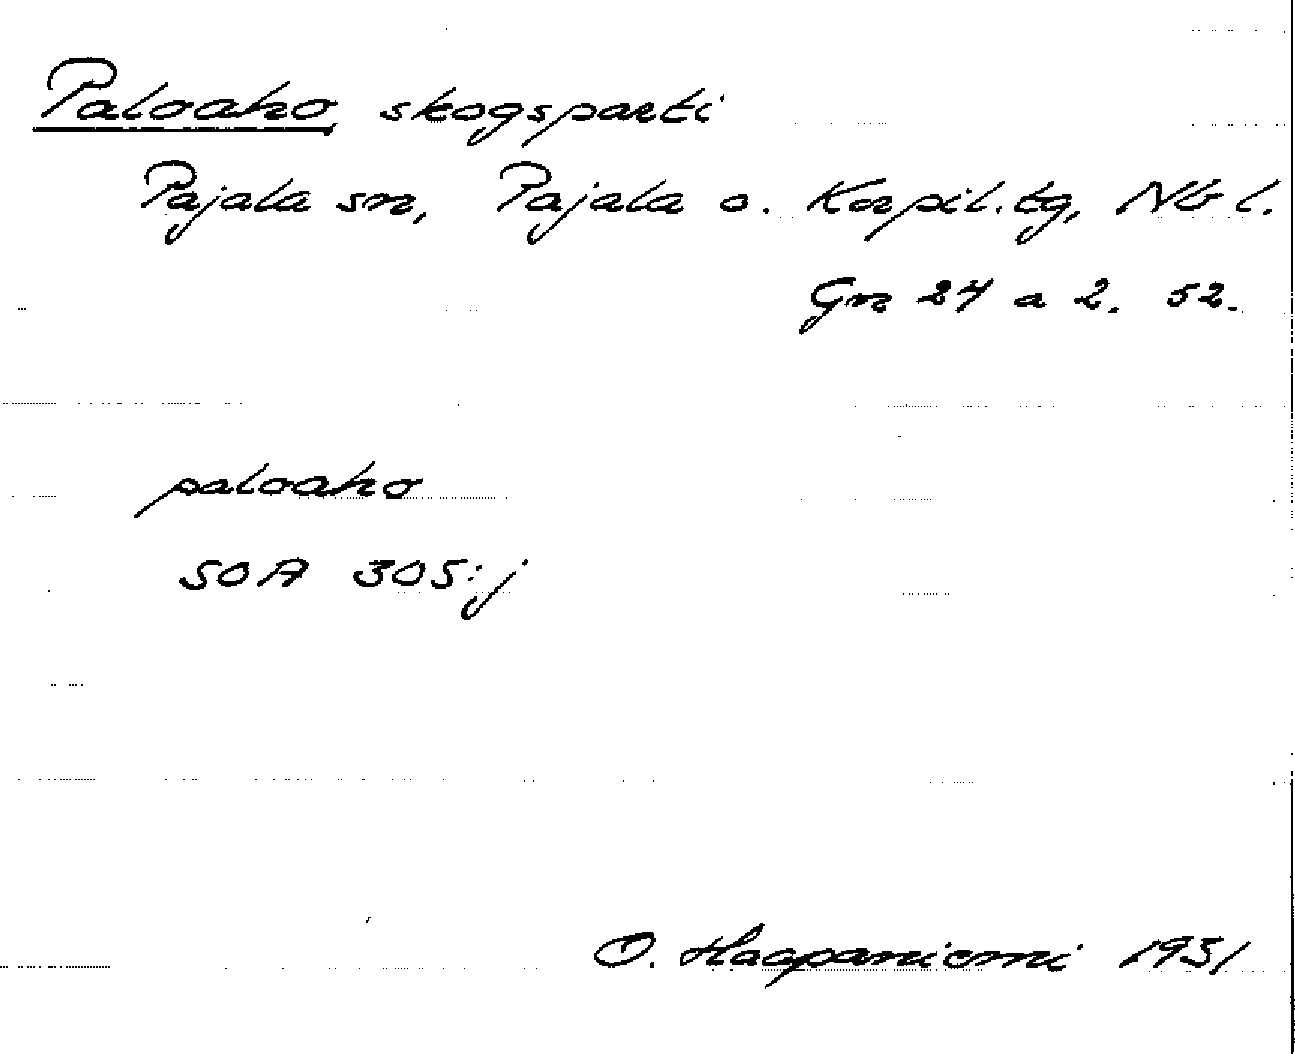 Paloaho skogsparti
Pajala sn, Pajala o. Korpil. tg, Nb l.
Grn 24 a 2. 52.
paloaho
SOA 305:j
O. Haapaniemi 1931